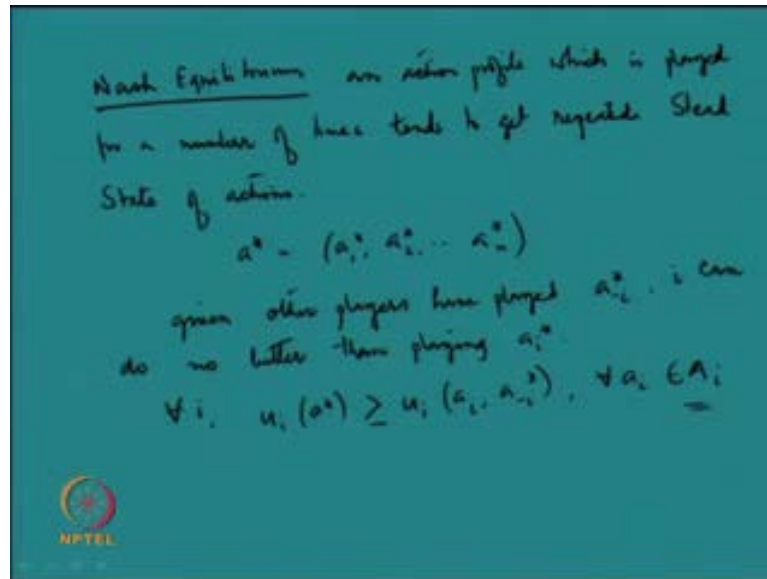 Nash Equilibrium an action profile which is played
for a number of times tends to get repeated. Stead
State of actions.
a* - (a₁*, a₂*, .. aₙ*)
given other players have played a₋ᵢ*. i can
do no better than playing aᵢ*.
∀ i, uᵢ (a*) ≥ uᵢ (aᵢ, a₋ᵢ*), ∀ aᵢ ∈ Aᵢ
NPTEL